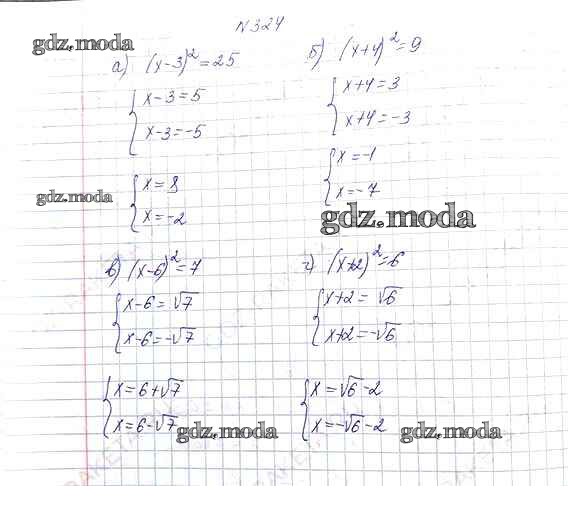 N324
gdz.moda
а) (x-3)²=25
{ x-3=5
x-3=-5
{ x=8
x=-2
gdz.moda
б) (x+4)²=9
{ x+4=3
x+4=-3
{ x=-1
x=-7
gdz.moda
в) (x-6)²=7
{ x-6=√7
x-6=-√7
{ x=6+√7
x=6-√7
gdz.moda
г) (x+2)²=6
{ x+2=√6
x+2=-√6
{ x=√6-2
x=-√6-2
gdz.moda